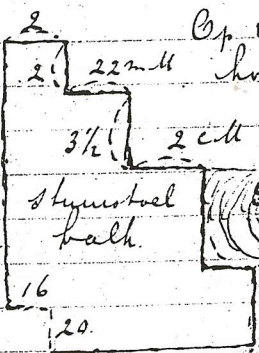 2
Op
2 22 mM
ho
3½ 2 cM
stuurstoel
balk.
16
20.